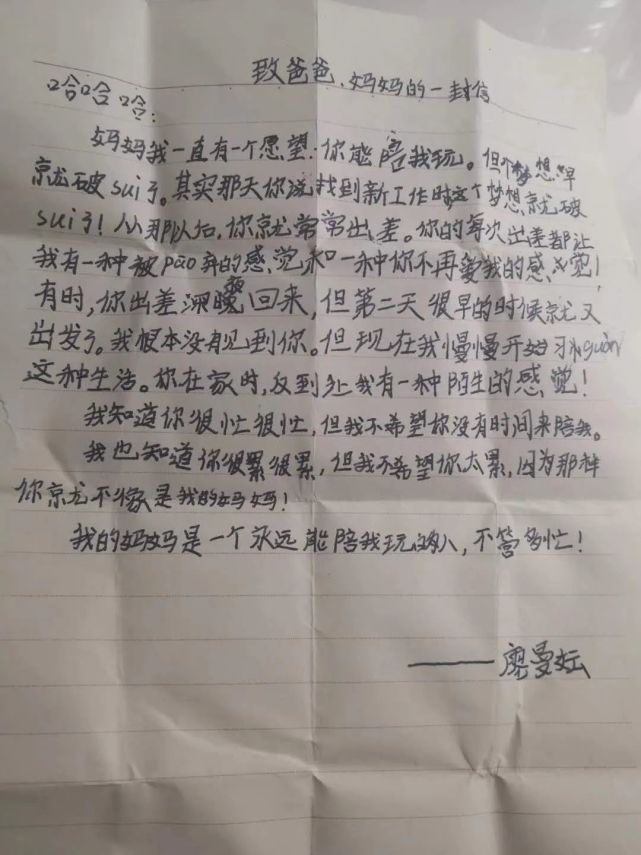 致爸爸、妈妈的一封信
哈哈哈:
妈妈我一直有一个愿望:你能陪我玩。但个梦想,早
就破sui了。其实那天你说找到新工作时这个梦想就破
sui了!从那以后,你就常常出差。你的每次出差都让
我有一种被pāo弃的感觉和一种你不再爱我的感觉!
有时,你出差深晚回来,但第二天很早的时候就又
出发了。我根本没有见到你。但现在我慢慢开始习guàn
这种生活。你在家时,反到让我有一种陌生的感觉!
我知道你很忙很忙,但我不希望你没有时间来陪我。
我也知道你很累很累,但我不希望你太累,因为那种
你就不像是我的妈妈!
我的妈妈是一个永远能陪我玩的人,不管多忙!
——廖曼妘